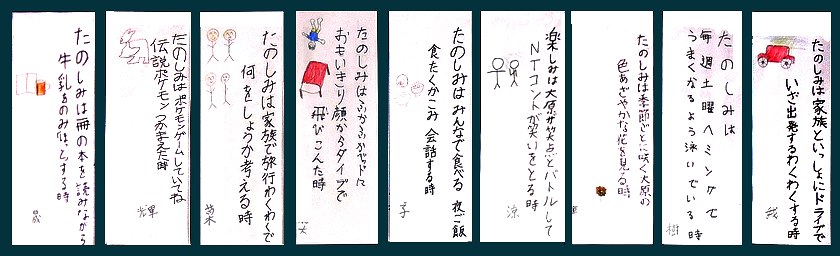 たのしみは家族といっしょにドライブで
いざ出発するわくわくする時
我
たのしみは
毎週土曜ヘミングで
うまくなるよう泳いでいる時
樹
たのしみは季節ごとに咲く大原の
色あざやかな花を見る時
楽しみは大原が笑点とバトルして
NTコントが笑いをとる時
涼
たのしみはみんなで食べる夜ご飯
食たくかこみ会話する時
子
たのしみはふかふかベッドに
おもいきり顔からダイブで
飛びこんだ時
たのしみは家族で旅行わくわくで
何をしようか考える時
菜
たのしみはポケモンゲームしていてね
伝説ポケモンつかまえた時
輝
たのしみは冊の本を読みながら
牛乳をのみほとする時
晟